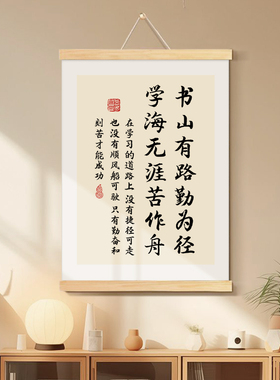 书山有路勤为径
学海无涯苦作舟
在学习的道路上 没有捷径可走
也没有顺风船可驶 只有勤奋和
刻苦才能成功